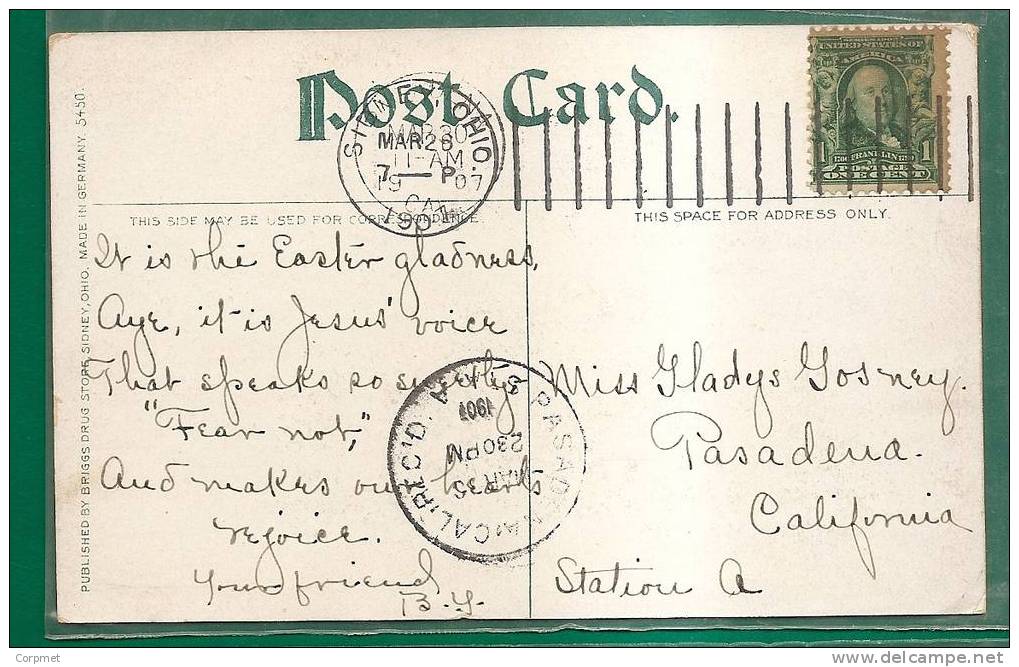 Post Card.
UNITED STATES OF
AMERICA
1 FRANKLIN 1
POSTAGE
ONE CENT
SIDNEY, OHIO.
MAR 26
7 — P
1907
MAR 30
11-AM
CAL.
THIS SIDE MAY BE USED FOR CORRESPONDENCE.
THIS SPACE FOR ADDRESS ONLY.
It is the Easter gladness,
Aye, it is Jesus' voice
That speaks so sweetly
"Fear not,"
And makes our hearts
rejoice.
Your friend
B. Y.
Miss Gladys Gosney.
Pasadena.
California
Station A
PASADENA, CAL. REC'D.
1907
2 30 PM
MAR
PUBLISHED BY BRIGGS DRUG STORE, SIDNEY, OHIO. MADE IN GERMANY. 5450.
Corpmet
www.delcampe.net